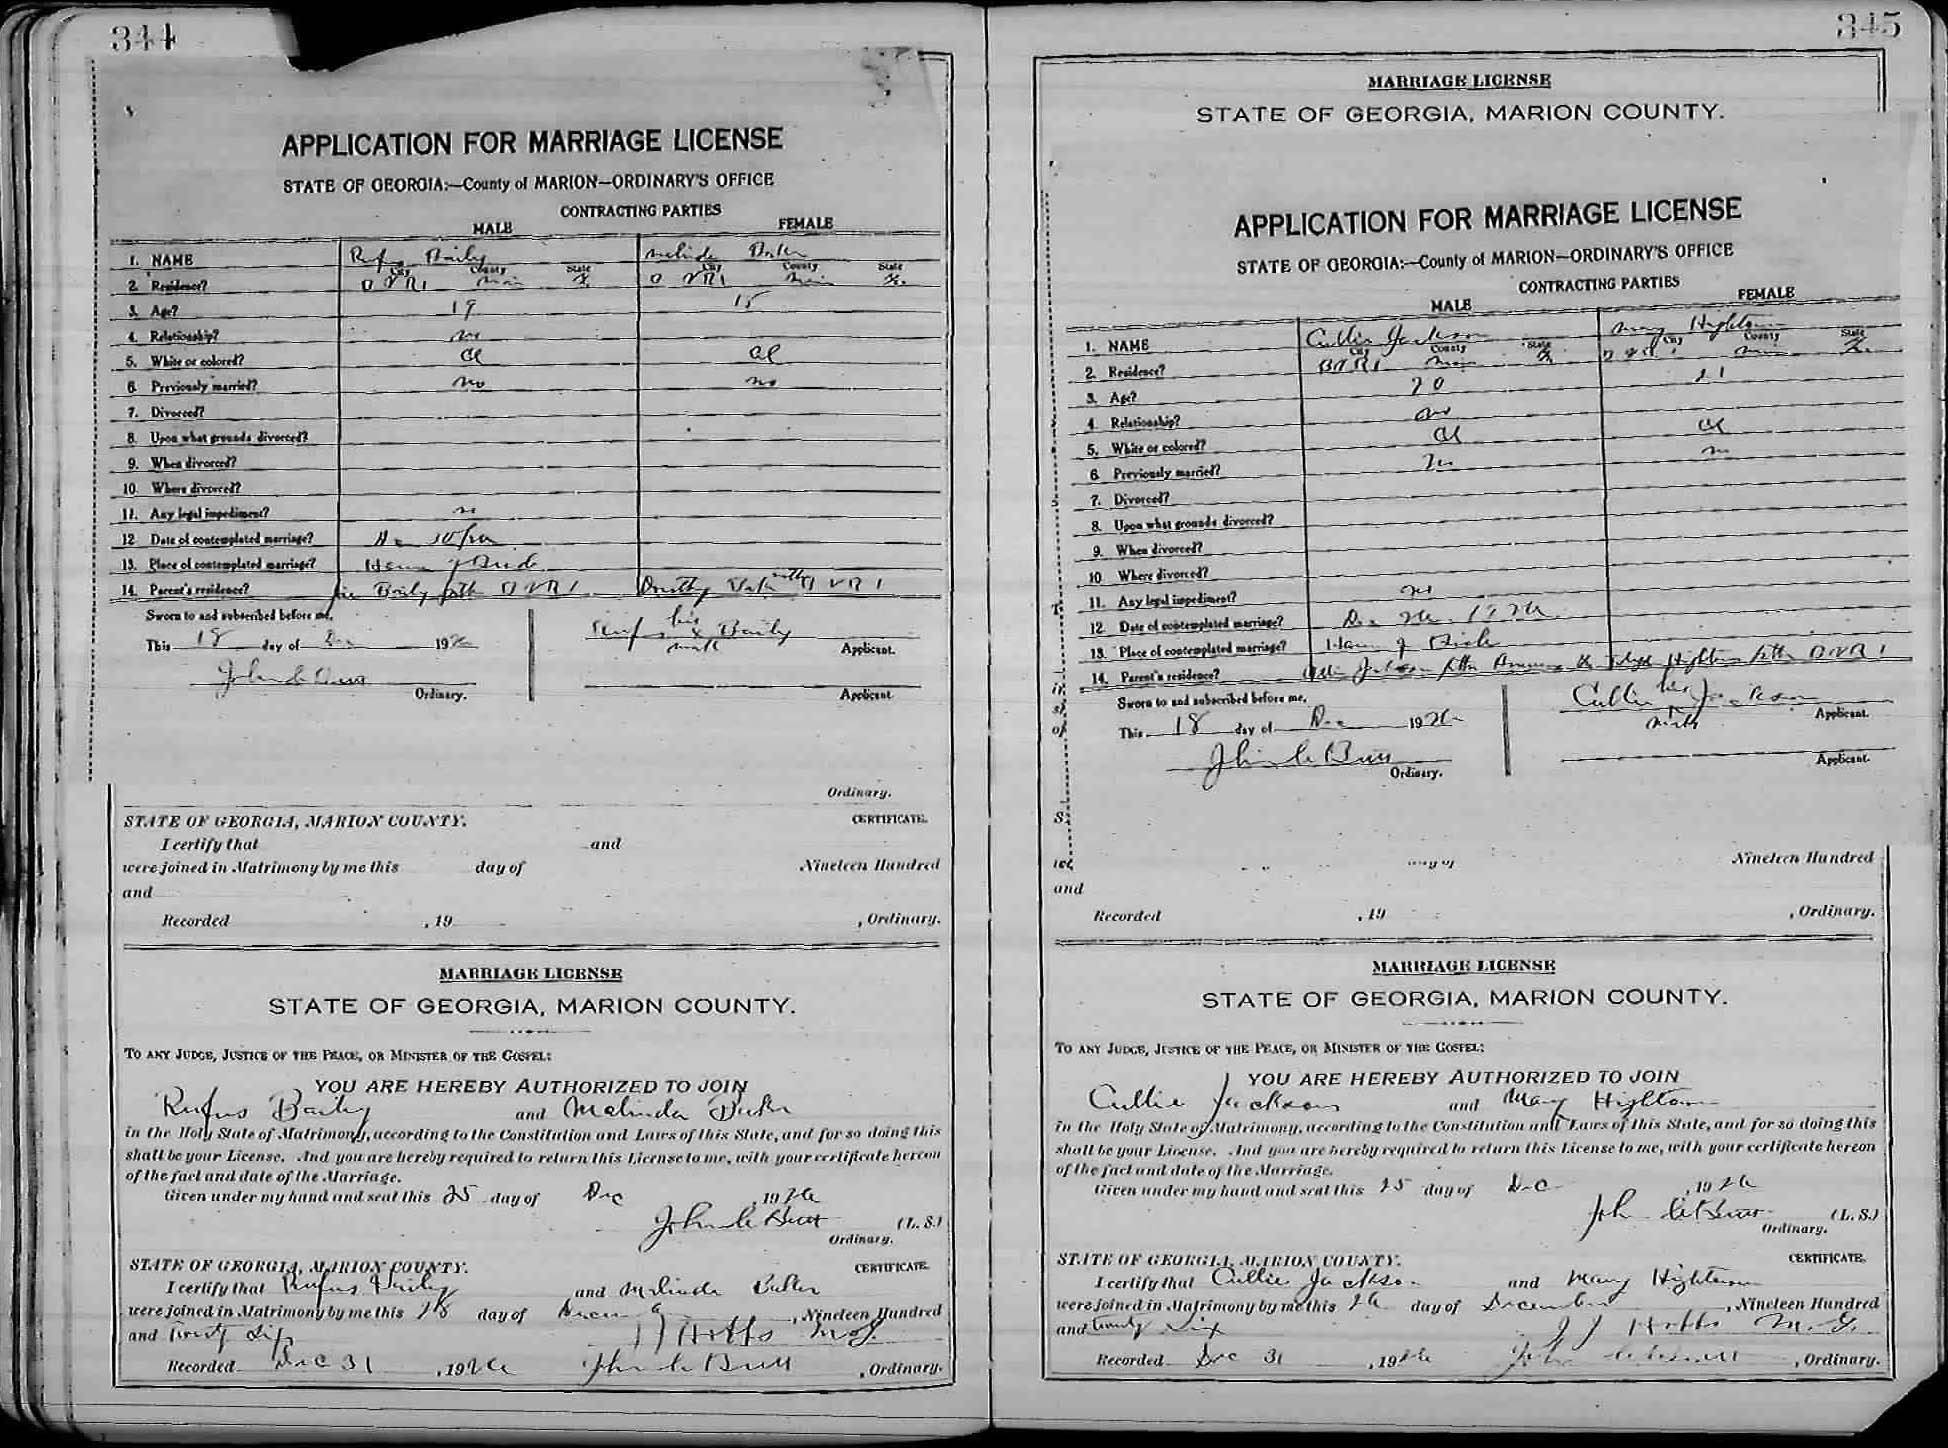 344
APPLICATION FOR MARRIAGE LICENSE
STATE OF GEORGIA:—County of MARION—ORDINARY'S OFFICE
CONTRACTING PARTIES
MALE FEMALE
1. NAME Rufus Baily Melinda
City County State City County State
2. Residence?
3. Age? 19 15
4. Relationship? no
5. White or colored? Col Col
6. Previously married? no no
7. Divorced?
8. Upon what grounds divorced?
9. When divorced?
10. Where divorced?
11. Any legal impediment? no
12. Date of contemplated marriage?
13. Place of contemplated marriage? Home of Bride
14. Parent's residence? Baily fath
Sworn to and subscribed before me,
This 18 day of Dec 1926
Rufus his x mark Baily Applicant.
John C Butt
Ordinary.
Applicant.
Ordinary.
STATE OF GEORGIA, MARION COUNTY. CERTIFICATE.
I certify that and
were joined in Matrimony by me this day of , Nineteen Hundred
and
Recorded , 19 , Ordinary.
MARRIAGE LICENSE
STATE OF GEORGIA, MARION COUNTY.
TO ANY JUDGE, JUSTICE OF THE PEACE, OR MINISTER OF THE GOSPEL:
YOU ARE HEREBY AUTHORIZED TO JOIN
Rufus Baily and Melinda
in the Holy State of Matrimony, according to the Constitution and Laws of this State, and for so doing this
shall be your License. And you are hereby required to return this License to me, with your certificate hereon
of the fact and date of the Marriage.
Given under my hand and seal this 25 day of Dec , 1926
John C Butt (L. S.)
Ordinary.
STATE OF GEORGIA, MARION COUNTY. CERTIFICATE.
I certify that Rufus Baily and Melinda
were joined in Matrimony by me this day of , Nineteen Hundred
and Twenty Six J J Hobbs M. G.
Recorded Dec 31 , 1926 John C Butt , Ordinary.
345
MARRIAGE LICENSE
STATE OF GEORGIA, MARION COUNTY.
APPLICATION FOR MARRIAGE LICENSE
STATE OF GEORGIA:—County of MARION—ORDINARY'S OFFICE
CONTRACTING PARTIES
MALE FEMALE
1. NAME Cullie Jackson Mary Hightower
City County State City County State
2. Residence?
3. Age? 20 21
4. Relationship? no
5. White or colored? Col Col
6. Previously married? no no
7. Divorced?
8. Upon what grounds divorced?
9. When divorced?
10. Where divorced?
11. Any legal impediment? no
12. Date of contemplated marriage? Dec 26 1926
13. Place of contemplated marriage? Home of Bride
14. Parent's residence? Jackson father Hightower father
Sworn to and subscribed before me,
This 18 day of Dec 1926
Cullie his x mark Jackson Applicant.
John C Butt
Ordinary.
Applicant.
Nineteen Hundred
and
Recorded , 19 , Ordinary.
MARRIAGE LICENSE
STATE OF GEORGIA, MARION COUNTY.
TO ANY JUDGE, JUSTICE OF THE PEACE, OR MINISTER OF THE GOSPEL:
YOU ARE HEREBY AUTHORIZED TO JOIN
Cullie Jackson and Mary Hightower
in the Holy State of Matrimony, according to the Constitution and Laws of this State, and for so doing this
shall be your License. And you are hereby required to return this License to me, with your certificate hereon
of the fact and date of the Marriage.
Given under my hand and seal this 25 day of Dec , 1926
John C Butt (L. S.)
Ordinary.
STATE OF GEORGIA, MARION COUNTY. CERTIFICATE.
I certify that Cullie Jackson and Mary Hightower
were joined in Matrimony by me this 26 day of December , Nineteen Hundred
and twenty Six J J Hobbs M. G.
Recorded Dec 31 , 1926 John C Butt , Ordinary.